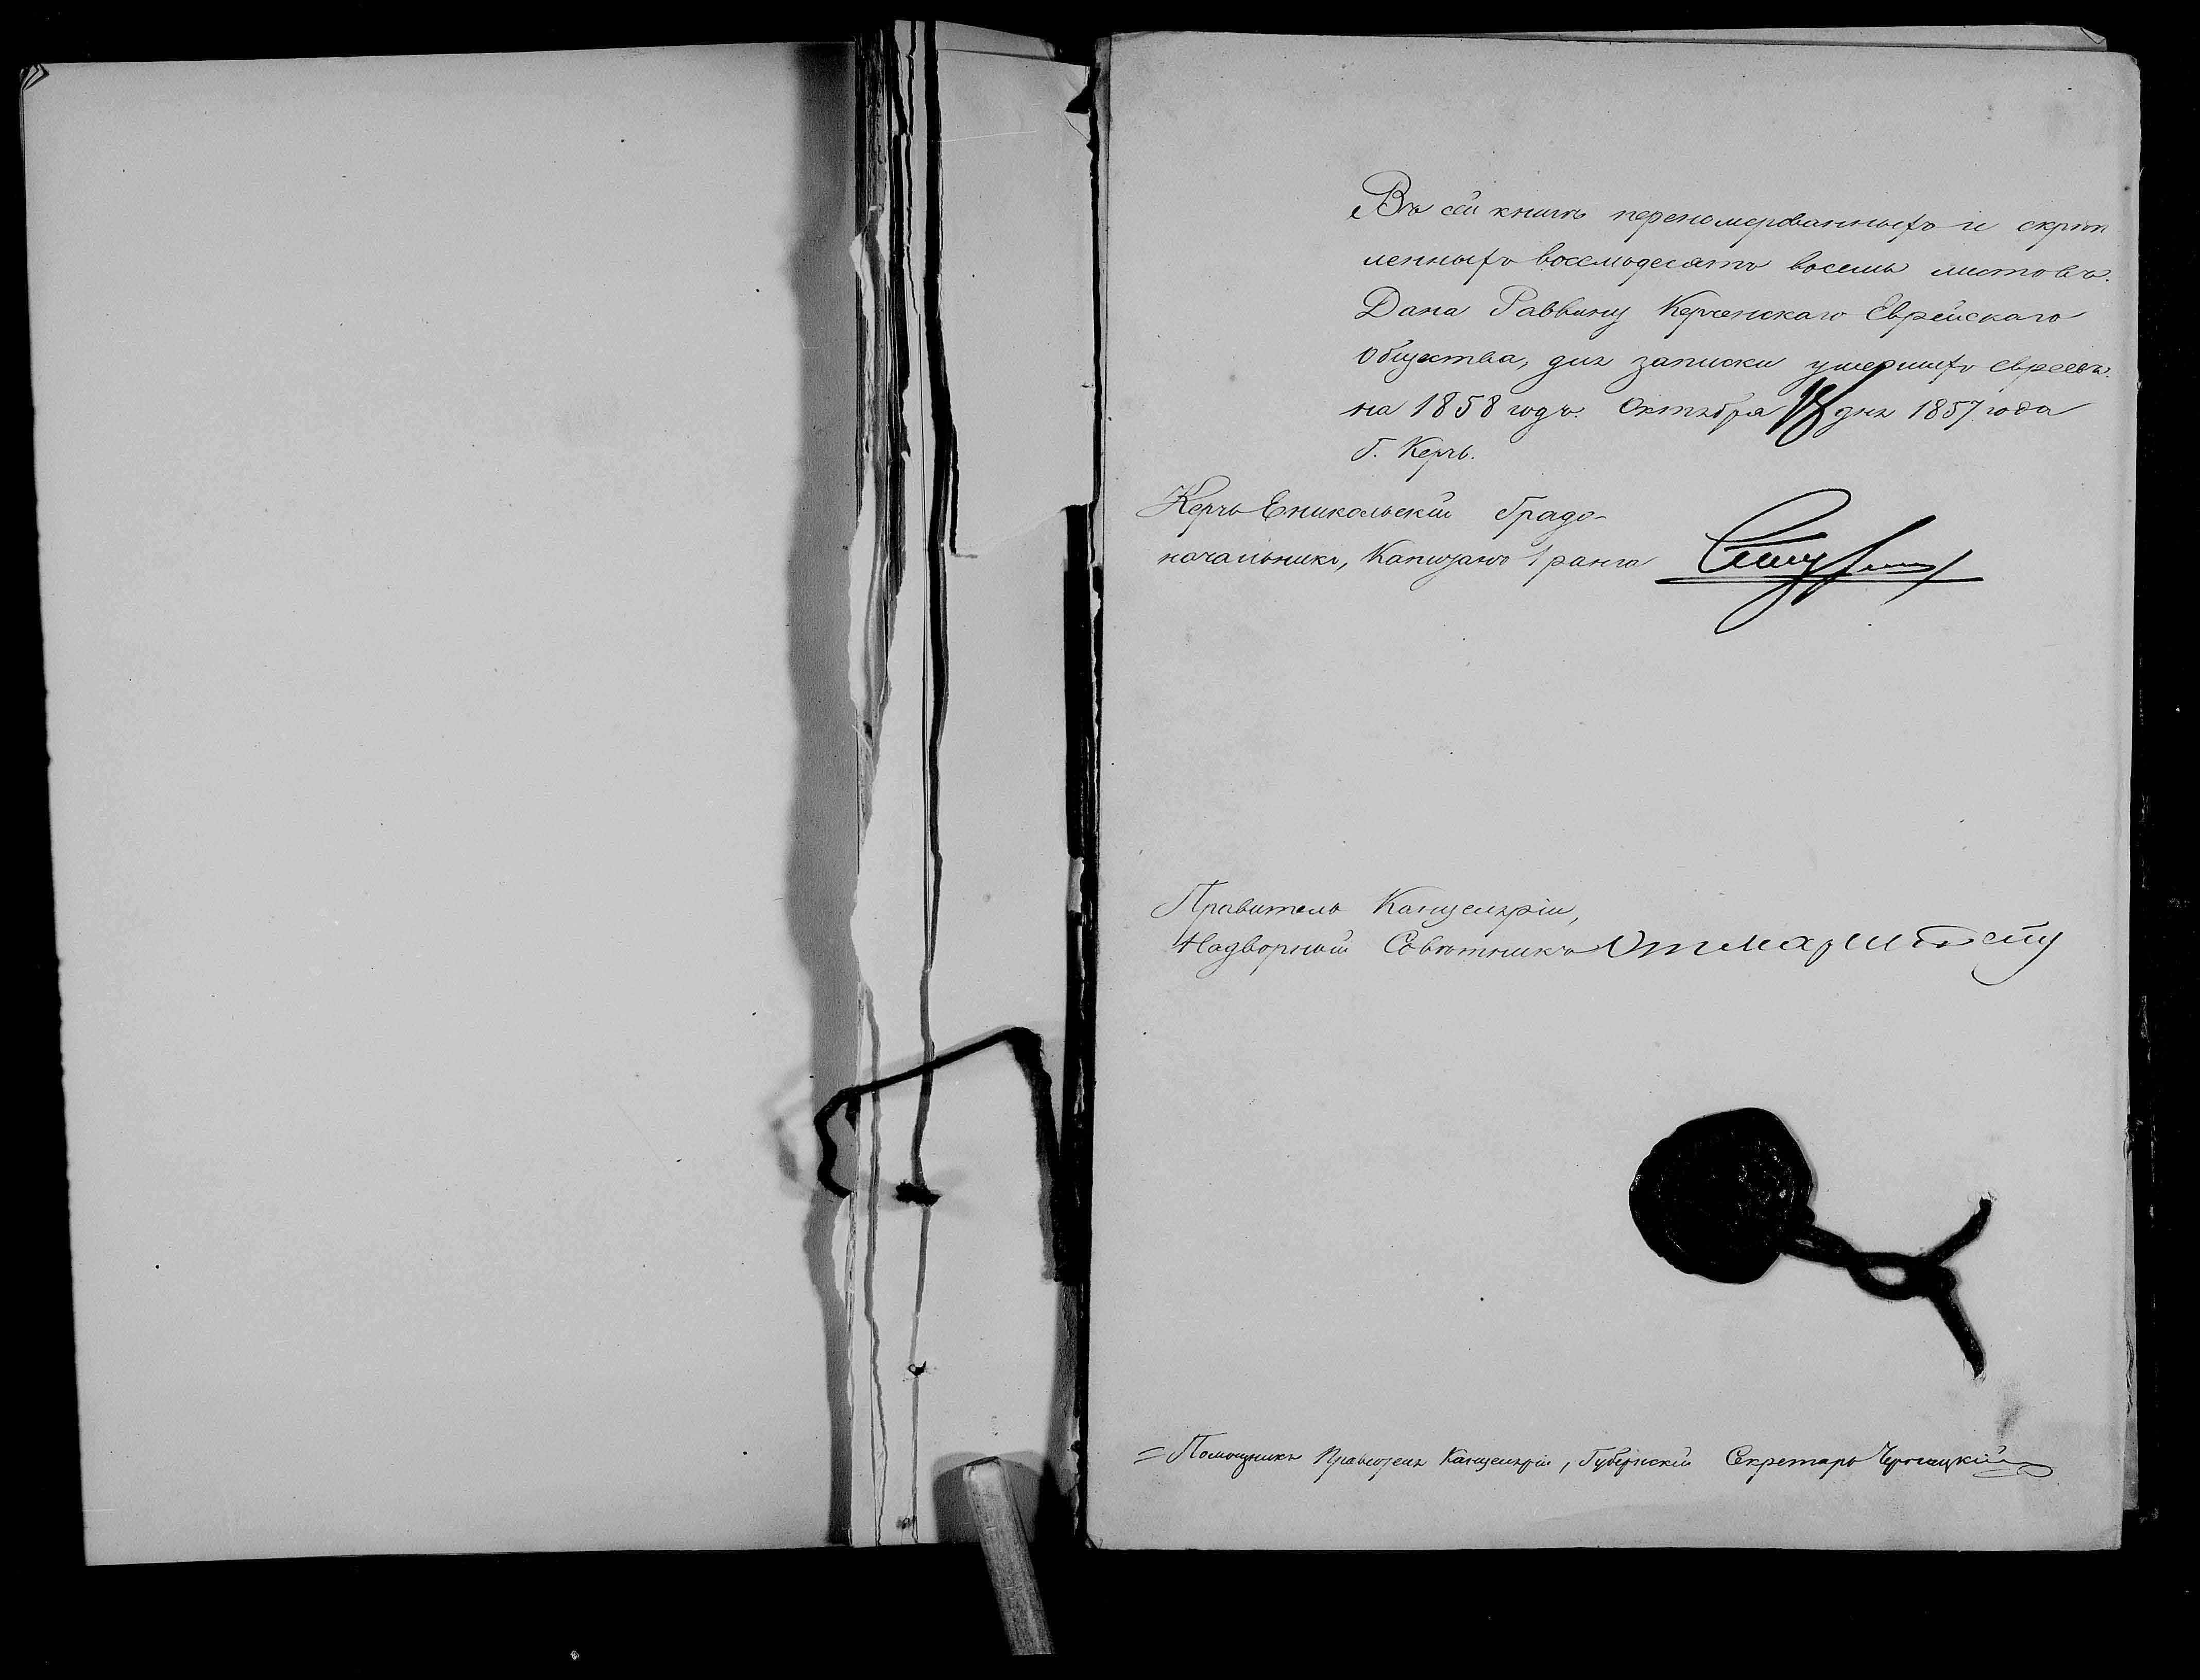 Въ сей книгѣ перенумерованныхъ и скрѣп
ленныхъ восемьдесятъ восемь листовъ.
Дана Раввину Керченскаго Еврейскаго
Общества, для записки умершихъ евреевъ.
на 1858 годъ. Октября дня 1857 года
Г. Керчь.
Керчь Еникольскій Градо-
начальникъ, Капитанъ 1 ранга
Правитель Канцеляріи,
Надворный Совѣтникъ
Помощникъ Правителя Канцеляріи, Губернскій Секретарь